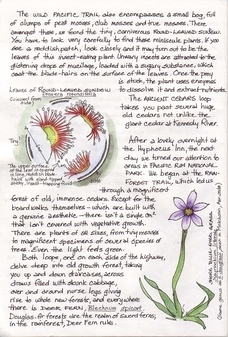 The WILD PACIFIC TRAIL also encompasses a small bog, full
of clumps of peat mosses, club mosses and true mosses. There
amongst them, we found the tiny, carnivorous ROUND-LEAVED SUNDEW.
You have to look very carefully to find these miniscule plants. If you
see a reddish patch, look closely and it may turn out to be the
leaves of this insect-eating plant. Unwary insects are attracted to the
glistening drops of mucilage, loaded with a sugary substance, which
coat the hairs on the surface of the leaves. Once the prey
is stuck, the plant uses enzymes
to dissolve it and extract nutrients.
Leaves of ROUND-LEAVED SUNDEW
Drosera rotundifolia
The ANCIENT CEDARS loop
takes you past several huge,
old cedars not unlike the
giant cedar at Kennedy River.
Tiny
The upper surface
After a lovely overnight
at the Wya Point Inn, the next
day we turned our attention to
areas in PACIFIC RIM NATIONAL
PARK. We began at the RAIN-
FOREST TRAIL, which led us
through a magnificent
forest of old, immense cedars. Except for the
boardwalks themselves - which are built with
a genuine aesthetic - there isn't a single
that isn't covered with vegetative growth.
There are plants of all sizes, from tiny mosses
to magnificent specimens of several species of
trees. Even the light feels green.
Both loops, one on each side of the highway,
delve deep into old growth forest, taking
you up and down staircases, across
draws filled with skunk cabbage,
over and around nurse logs giving
rise to whole new forests, and everywhere
there is DEER FERN, Blechnum spicant.
Douglas-fir forests are the realm of sword ferns;
in the rainforest, Deer Fern rules.